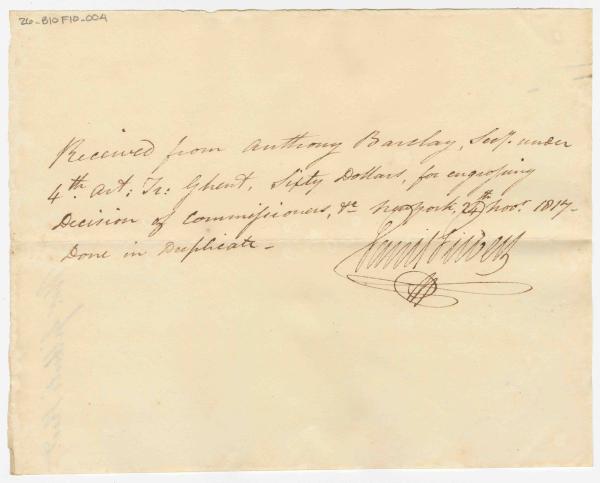 26-B10F10-004
Received from Anthony Barclay, Secy. under
4th. Art: Tr: Ghent, Sixty Dollars, for engrossing
Decision of Commissioners, &c New York, 24th, Novr. 1817-
Done in Duplicate-